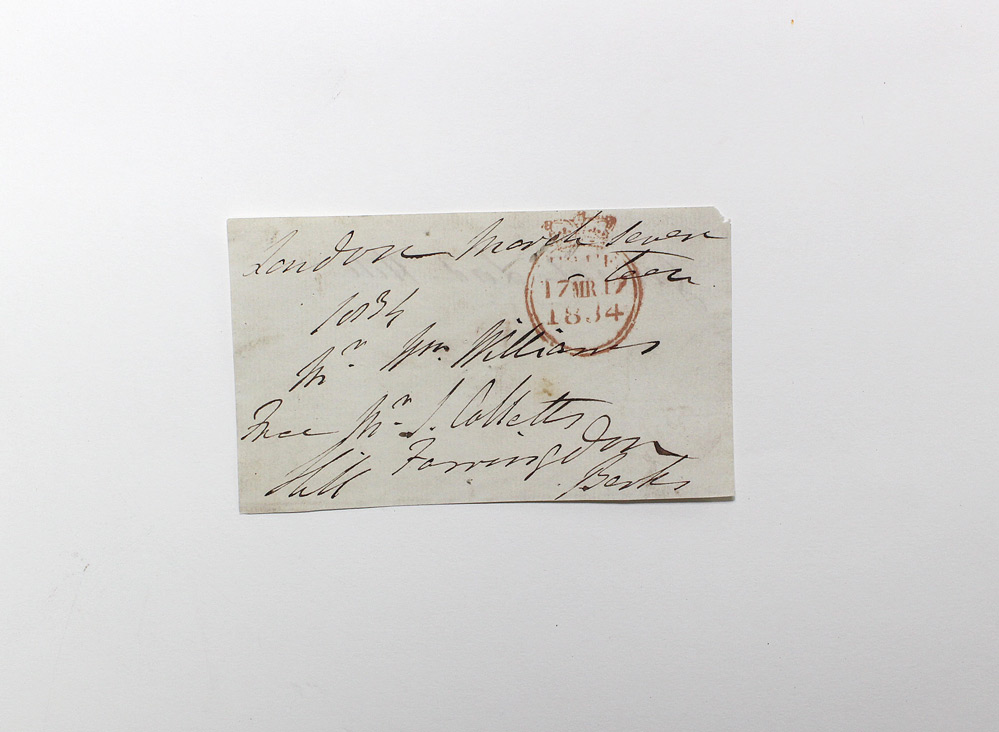 London March seven
- teen
1834
Mr. Wm. Williams
Free Mr. J. Colletts
Farringdon
Hill Berks
FREE
17 MR 17
1834